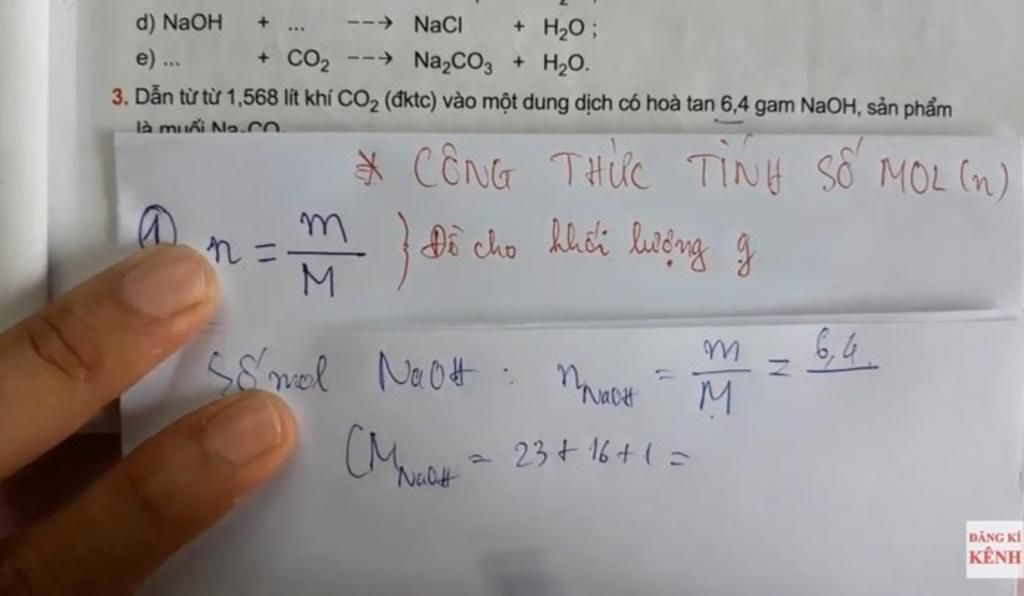 d) NaOH + ... ---> NaCl + H₂O ;
e) ... + CO₂ ---> Na₂CO₃ + H₂O.
3. Dẫn từ từ 1,568 lít khí CO₂ (đktc) vào một dung dịch có hoà tan 6,4 gam NaOH, sản phẩm
là muối Na₂CO
* CÔNG THỨC TÍNH SỐ MOL (n)
① n = m/M } Đề cho khối lượng g
Số mol NaOH : n NaOH = m/M = 6,4
(M NaOH = 23 + 16 + 1 =
ĐĂNG KÍ
KÊNH